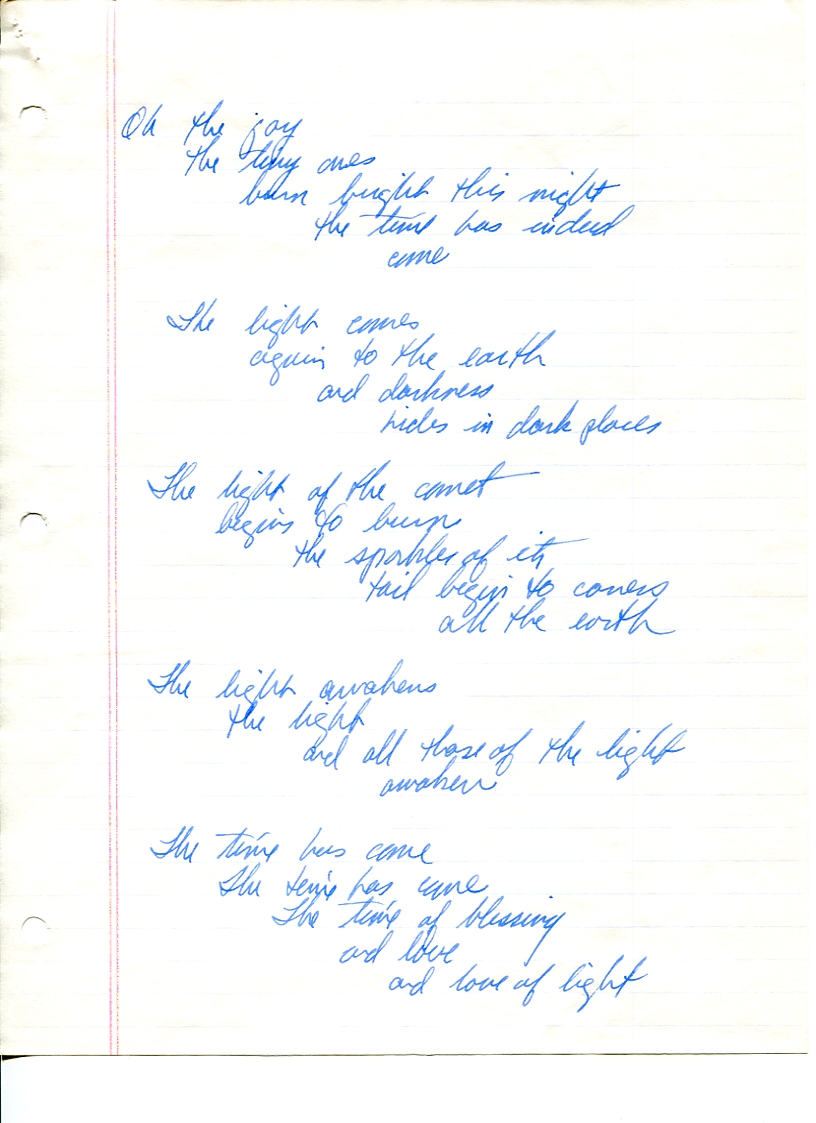 Oh the joy
the tiny ones
burn bright this night
the time has indeed
come
The light comes
again to the earth
and darkness
hides in dark places
The light of the comet
begins to burn
the sparkles of its
tail begin to covers
all the earth
The light awakens
the light
and all those of the light
awaken
The time has come
The time has come
The time of blessing
and love
and love of light